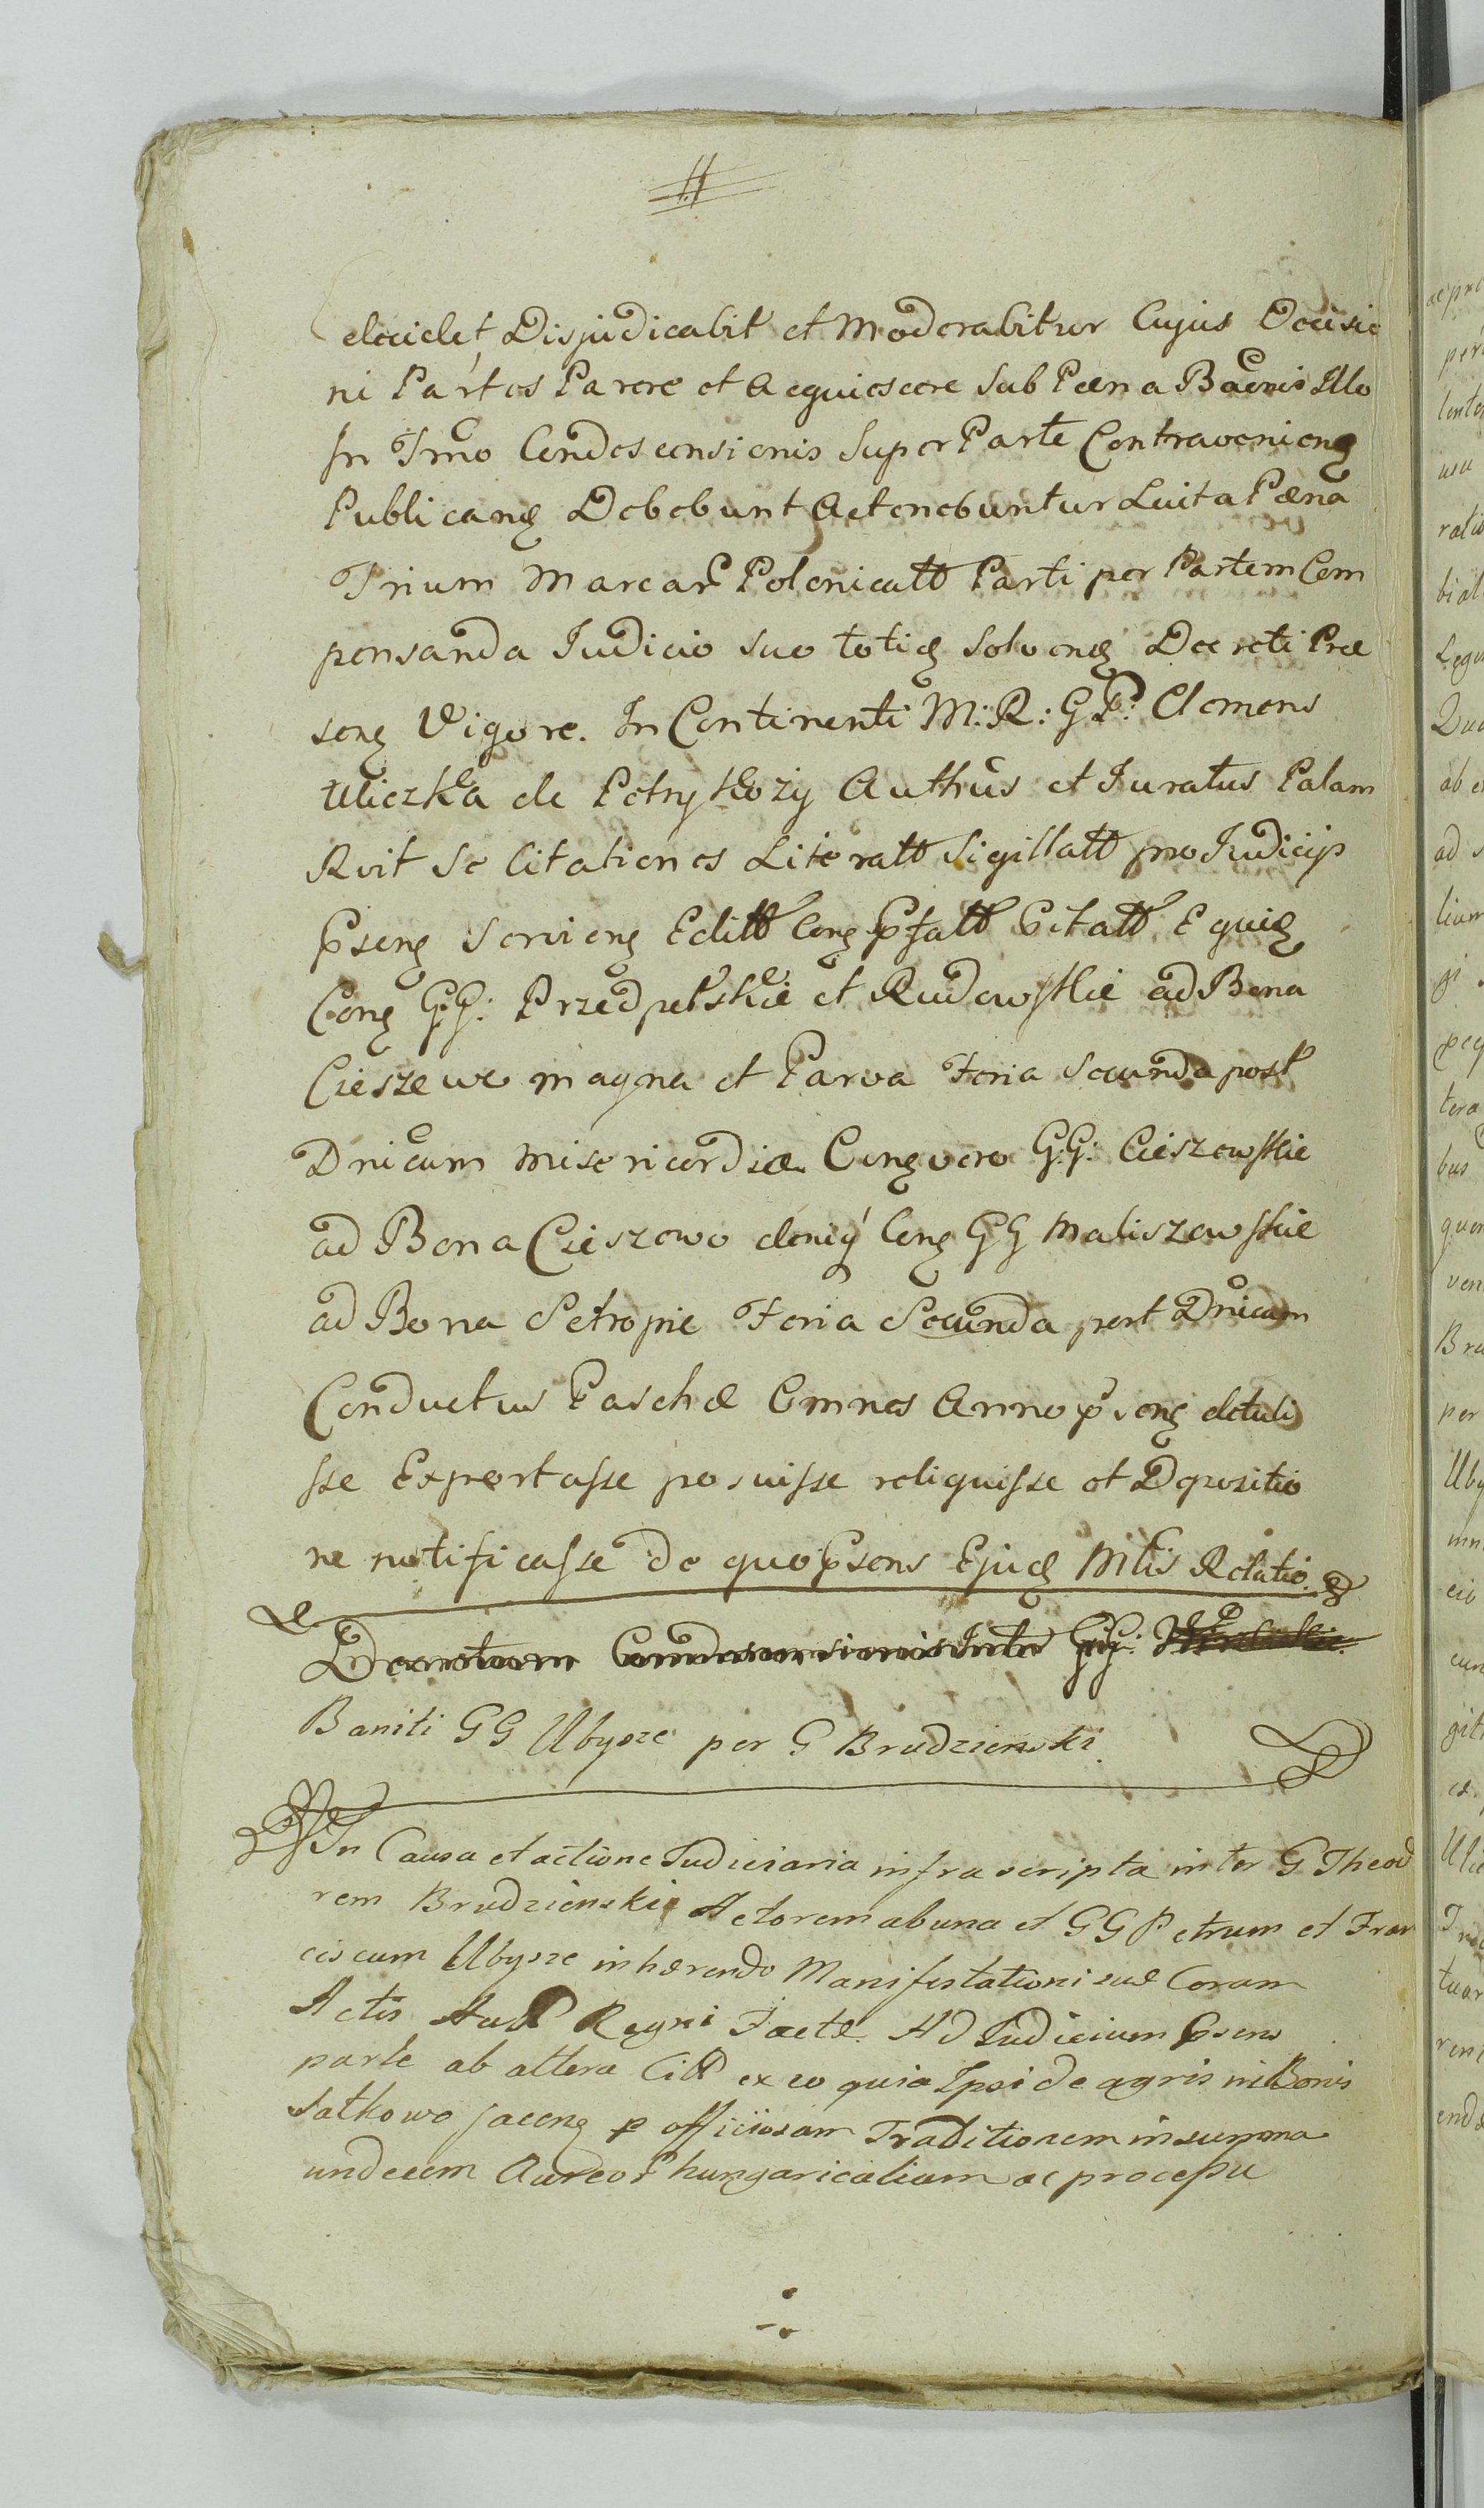 decidet Disjudicabit et Moderabitur Cujus Decisio
ni Partes Parere et Acquiescere Sub Pœna Baõnis Illo
In Tmo Condescensionis Super Parte Contravenienꝫ
Publicanꝫ Debebunt Ac tenebuntur Luita Pœna
Trium Marcarũ Polonicatt Parti per Partem Com
pensanda Iudicio suo totieꝫ Solvenꝫ Decreti Præ
senꝫ Vigore. In Continenti M: R: G P: Clemens
Uliczka de Petrykozy Authũs et Iuratus Palam
Rvit Se Citationes Literatt Sigillatt pro Judicijs
Psenꝫ Servienꝫ Editt Conꝫ Pfatt Citatt Equiꝫ
Conꝫ GG: Przedpełskie et Rudowskie ad Bona
Cieszewo magna et Parva Feria Secunda post
Dnicam Misericordiæ Conꝫ vero GG: Cieszewskie
ad Bona Cieszewo deniq Conꝫ GG Maliszewskie
ad Bona Setropie Feria Secunda post Dnicam
Conductus Paschæ Omnes Anno psenꝫ detuli
sse Exportasse posuisse reliquisse et Depositio
ne notificasse de quo Psens Ejuꝫ Mtis Relatio
Decretum Condescensionis Inter GG:
Baniti GG Ubysze per G Brudzienski
In Causa et actione Iudiciaria infrascripta inter G Theod
rem Brudzienski Actorem ab una et GG Petrum et Fran
ciscum Ubysze inhærendo Manifestationi suæ Coram
Actis Regni Factæ Ad Iudicium Psens
parte ab altera Citt ex eo quia Ipsi de agris in Bonis
Satkowo jacenꝫ p officiosam Traditionem in summa
undecem Aureor hungaricalium ac processu